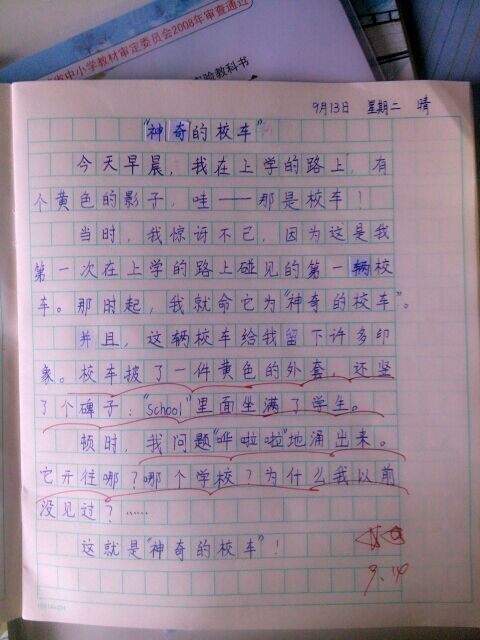 省中小学教材审定委员会2008年审查通过
实验教科书
9月13日 星期二 晴
"神奇的校车"
今天早晨，我在上学的路上，有
个黄色的影子，哇——那是校车！
当时，我惊讶不已，因为这是我
第一次在上学的路上碰见的第一辆校
车。那时起，我就命它为"神奇的校车"。
并且，这辆校车给我留下许多印
象。校车披了一件黄色的外套，还竖
了个碑子："school"里面坐满了学生。
顿时，我问题"哗啦啦"地涌出来。
它开往哪？哪个学校？为什么我以前
没见过？……
这就是"神奇的校车"！
9.14